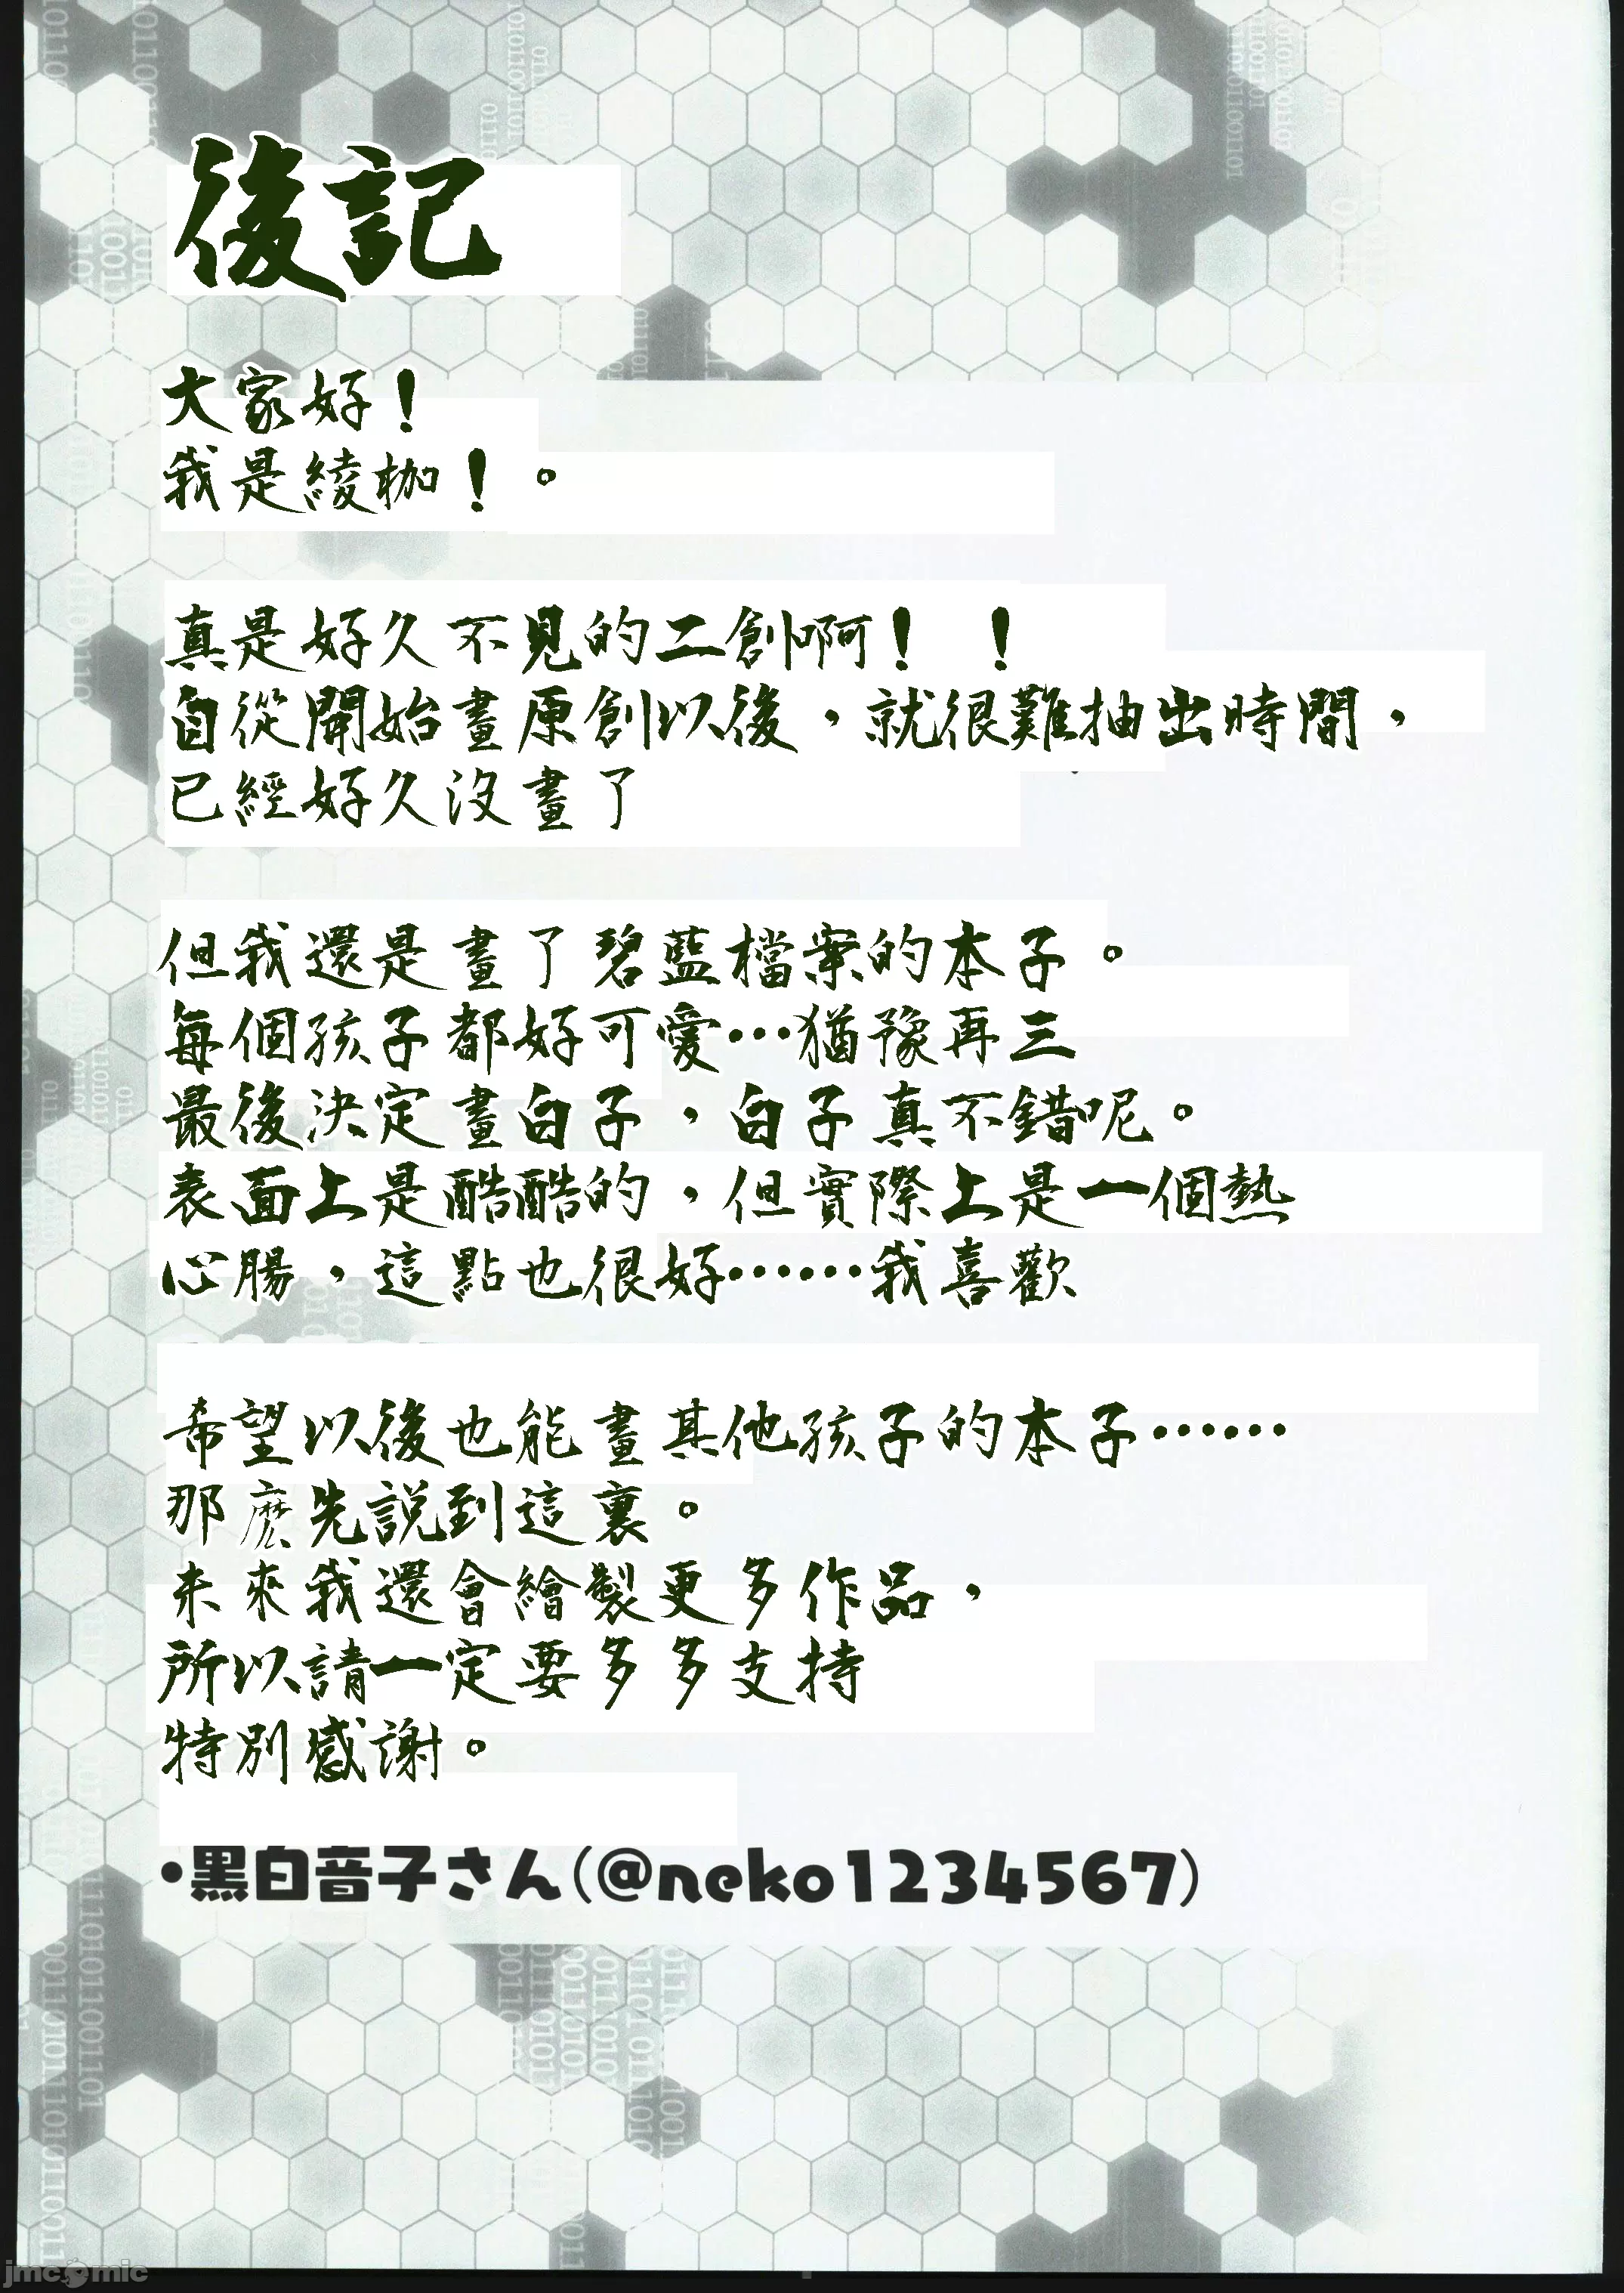 後記
大家好！
我是綾枷！。
真是好久不見的二創啊！！
自從開始畫原創以後，就很難抽出時間，
已經好久沒畫了
但我還是畫了碧藍檔案的本子。
每個孩子都好可愛…猶豫再三
最後決定畫白子，白子真不錯呢。
表面上是酷酷的，但實際上是一個熱
心腸，這點也很好……我喜歡
希望以後也能畫其他孩子的本子……
那麼先說到這裏。
未來我還會繪製更多作品，
所以請一定要多多支持
特別感謝。
•黒白音子さん(@neko1234567)
jmcomic